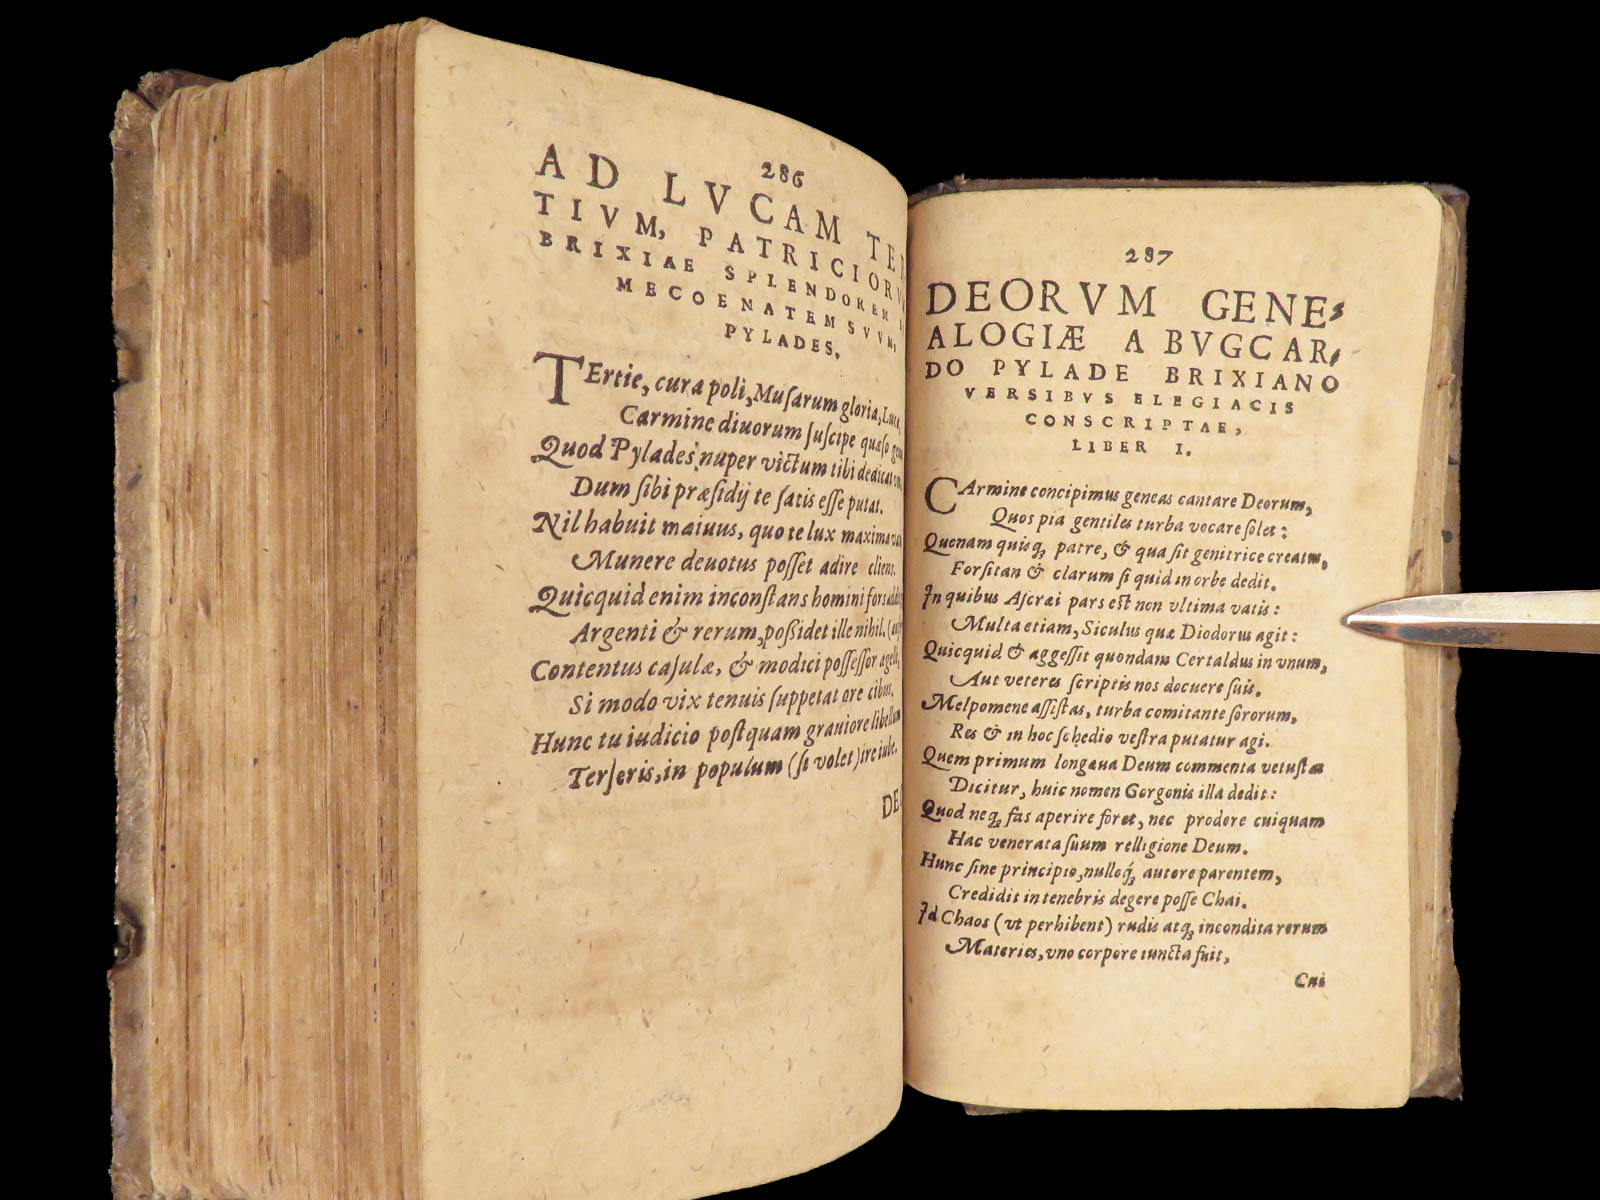 286
AD LVCAM TER
TIVM, PATRICIORV
BRIXIAE SPLENDOREM
MECOENATEM SVVM,
PYLADES.
TErtie, cura poli, Muſarum gloria, Luca,
Carmine diuorum ſuſcipe quæſo gen
Quod Pylades nuper victum tibi dedicat
Dum ſibi præſidij te ſatis eſſe putat.
Nil habuit maiuus, quo te lux maxima
Munere deuotus poſſet adire cliens.
Quicquid enim inconſtans homini fors
Argenti & rerum, poßidet ille nihil.
Contentus caſulæ, & modici poſſeſſor agelli,
Si modo vix tenuis ſuppetat ore cibus.
Hunc tu iudicio poſtquam grauiore libellum
Terſeris, in populum (ſi volet) ire iube.
DEO
287
DEORVM GENE-
ALOGIÆ A BVGCAR-
DO PYLADE BRIXIANO
VERSIBVS ELEGIACIS
CONSCRIPTAE,
LIBER I.
CArmine concipimus geneas cantare Deorum,
Quos pia gentiles turba vocare ſolet:
Quenam quisq; patre, & qua ſit genitrice creatus,
Forſitan & clarum ſi quid in orbe dedit.
In quibus Aſcræi pars eſt non vltima vatis:
Multa etiam, Siculus quæ Diodorus agit:
Quicquid & aggeſſit quondam Certaldus in vnum,
Aut veteres ſcriptis nos docuere ſuis.
Melpomene aſſiſtas, turba comitante ſororum,
Res & in hoc ſchedio veſtra putatur agi.
Quem primum longæua Deum commenta vetuſtas
Dicitur, huic nomen Gorgonis illa dedit:
Quod neq; fas aperire foret, nec prodere cuiquam
Hac venerata ſuum relligione Deum.
Hunc ſine principio, nulloq́; autore parentem,
Credidit in tenebris degere poſſe Chai.
Id Chaos (vt perhibent) rudis atq; incondita rerum
Materies, vno corpore iuncta fuit,
Cui